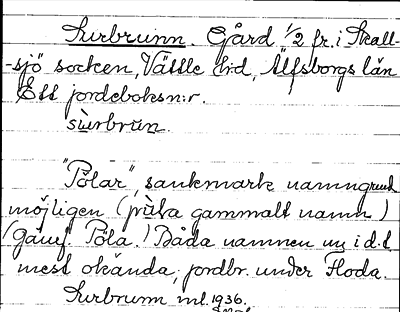 Surbrunn. Gård 1/2 fr. i Skall-
-sjö socken, Vättle hd, Älfsborgs län
Ett jordeboksn:r.
sùrbrùn.
"Pölar", sankmark namngrund
möjligen (gammalt namn)
(Jämf. Pöla.) Båda namnen nu i d. l.
mest okända, jordbr. under Floda.
Surbrunn ml. 1936.